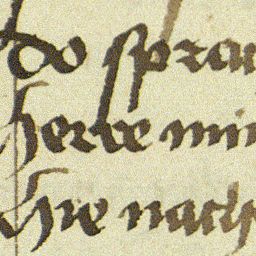 do sprau
herre min
hie nach